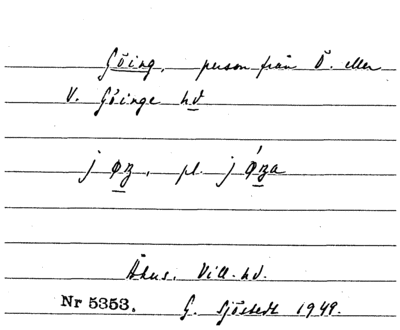 Göing, person från Ö. eller
V. Göinge hd
j øʒ, pl. j ǿʒa
Åhus. Vill. hd.
Nr 5353. G. Sjöstedt 1949.